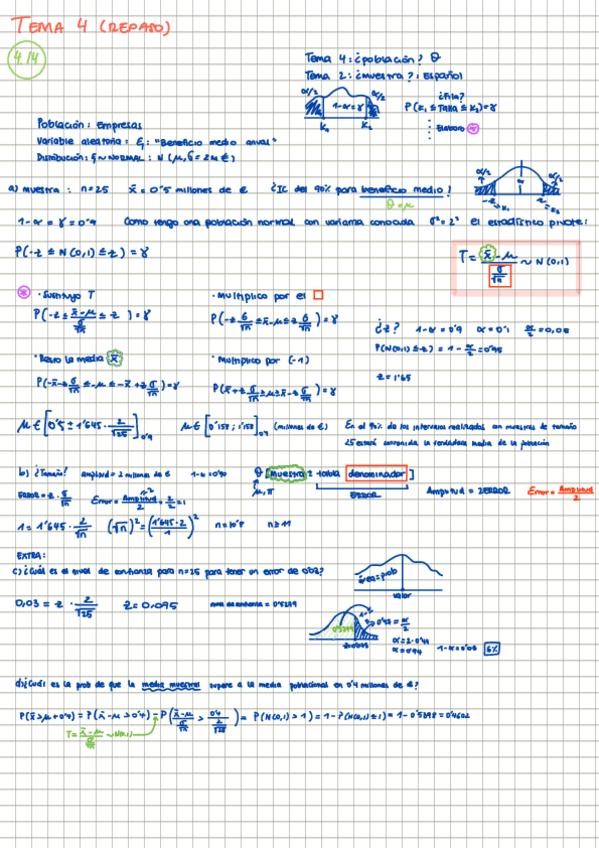 TEMA 4 (REPASO)
4.14
Tema 4: ¿población? θ
Tema 2: ¿muestra?: Español
α/2 1-α=γ α/2
K₁ K₂
¿Fila?
P(K₁ ≤ Tabla ≤ K₂)=γ
Elaboro *
Población: Empresas
Variable aleatoria: ξ: "Beneficio medio anual"
Distribución: ξ ~ NORMAL: N(μ, σ = 2M €)
α/2 α/2
a) muestra: n=25 x̄ = 0'5 millones de € ¿IC del 90% para beneficio medio?
θ=μ
1-α = γ = 0'9 Como tengo una población normal con varianza conocida σ² = 2² el estadístico pivote:
P(-z ≤ N(0,1) ≤ z) = γ
T = x̄ - μ / σ/√n ~ N(0,1)
* · Sustituyo T
P(-z ≤ x̄-μ / σ/√n ≤ z) = γ
· Multiplico por el □
P(-z σ/√n ≤ x̄-μ ≤ z σ/√n) = γ
¿z? 1-α = 0'9 α = 0'1 α/2 = 0,05
P(N(0,1) ≤ z) = 1 - α/2 = 0'95
z = 1'65
· Resto la media x̄
P(-x̄-z σ/√n ≤ -μ ≤ -x̄+z σ/√n) = γ
· Multiplico por (-1)
P(x̄+z σ/√n ≥ μ ≥ x̄-z σ/√n) = γ
μ ∈ [0'5 ± 1'645 · 2/√25]0'9 μ ∈ [0'158; 1'158]0'9 (millones de €)
En el 90% de los intervalos realizados con muestras de tamaño
25 estará contenida la verdadera media de la población
b) ¿Tamaño? amplitud = 2 millones de € 1-α = 0'90
θ [muestra ± tabla denominador]
μ, π
ERROR
ERROR = z · σ/√n Error = Amplitud/2 = 2/2 = 1
Amplitud = 2ERROR Error = Amplitud/2
1 = 1'645 · 2/√n (√n)² = (1'645·2/1)² n = 10'8 n ≥ 11
EXTRA:
c) ¿Cuál es el nivel de confianza para n=25 para tener un error de 0'03?
área = prob
valor
0,03 = z · 2/√25 z = 0,075
α = 0'94 1-α = 0'06 6%
d) ¿Cuál es la prob de que la media muestral supere a la media poblacional en 0'4 millones de €?
P(x̄ > μ + 0'4) = P(x̄ - μ > 0'4) = P(x̄-μ / σ/√n > 0'4 / 2/√25) = P(N(0,1) > 1) = 1 - P(N(0,1) ≤ 1) = 1 - 0'5398 = 0'4602
T = x̄-μ / σ/√n ~ N(0,1)